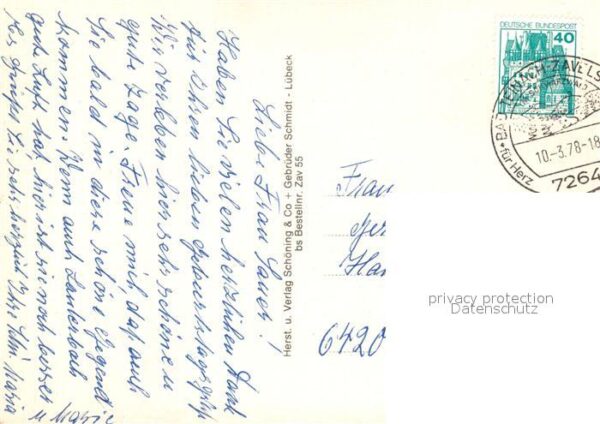 Liebe Frau !
Haben Sie vielen herzlichen Dank
für Ihren lieben Geburtstagsgruß
Wir verleben hier sehr schöne u
gute Tage. Freue mich daß auch
Sie bald in diese schöne Gegend
kommen. Wenn auch Lauterbach
gute Luft hat, hier ist sie noch besser
Es grüßt Sie sehr herzlich Ihre
u Marie
Herst. u. Verlag Schöning & Co + Gebrüder Schmidt - Lübeck
bs Bestellnr. Zav 55
DEUTSCHE BUNDESPOST
40
BAD TEINACH-ZAVELST
10.-3.78-18
für Herz
7264
Frau
Ger
Ha
6420
privacy protection
Datenschutz